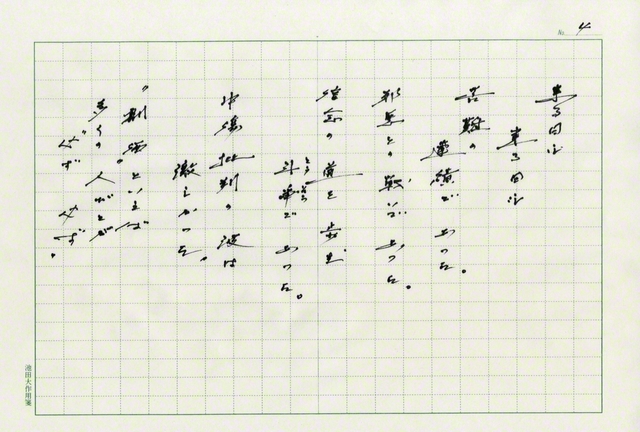 No. 4
来る日も
来る日も
苦難の
連続で あった。
との 戦いで あった。
の 道を 歩む
とうそう
斗争で あった。
中傷批判の 波は
激しかった。
といえば
多くの 人びとが
池田大作用箋